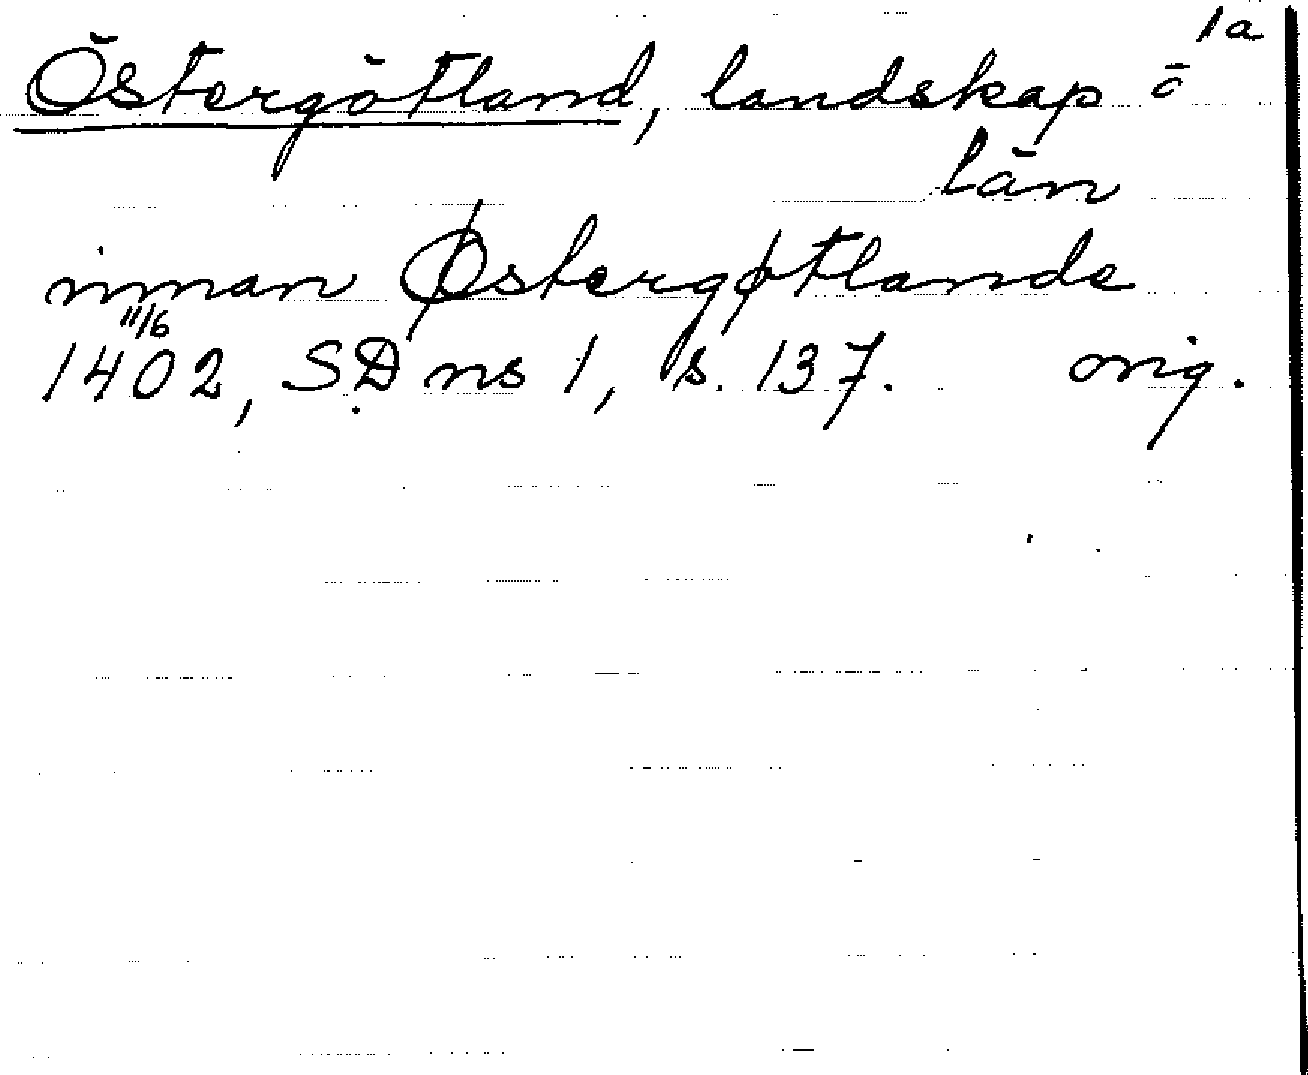 1a
Östergötland, landskap o
län
inman Østergøtlande
11/6
1402, SD ns 1, s. 137. orig.